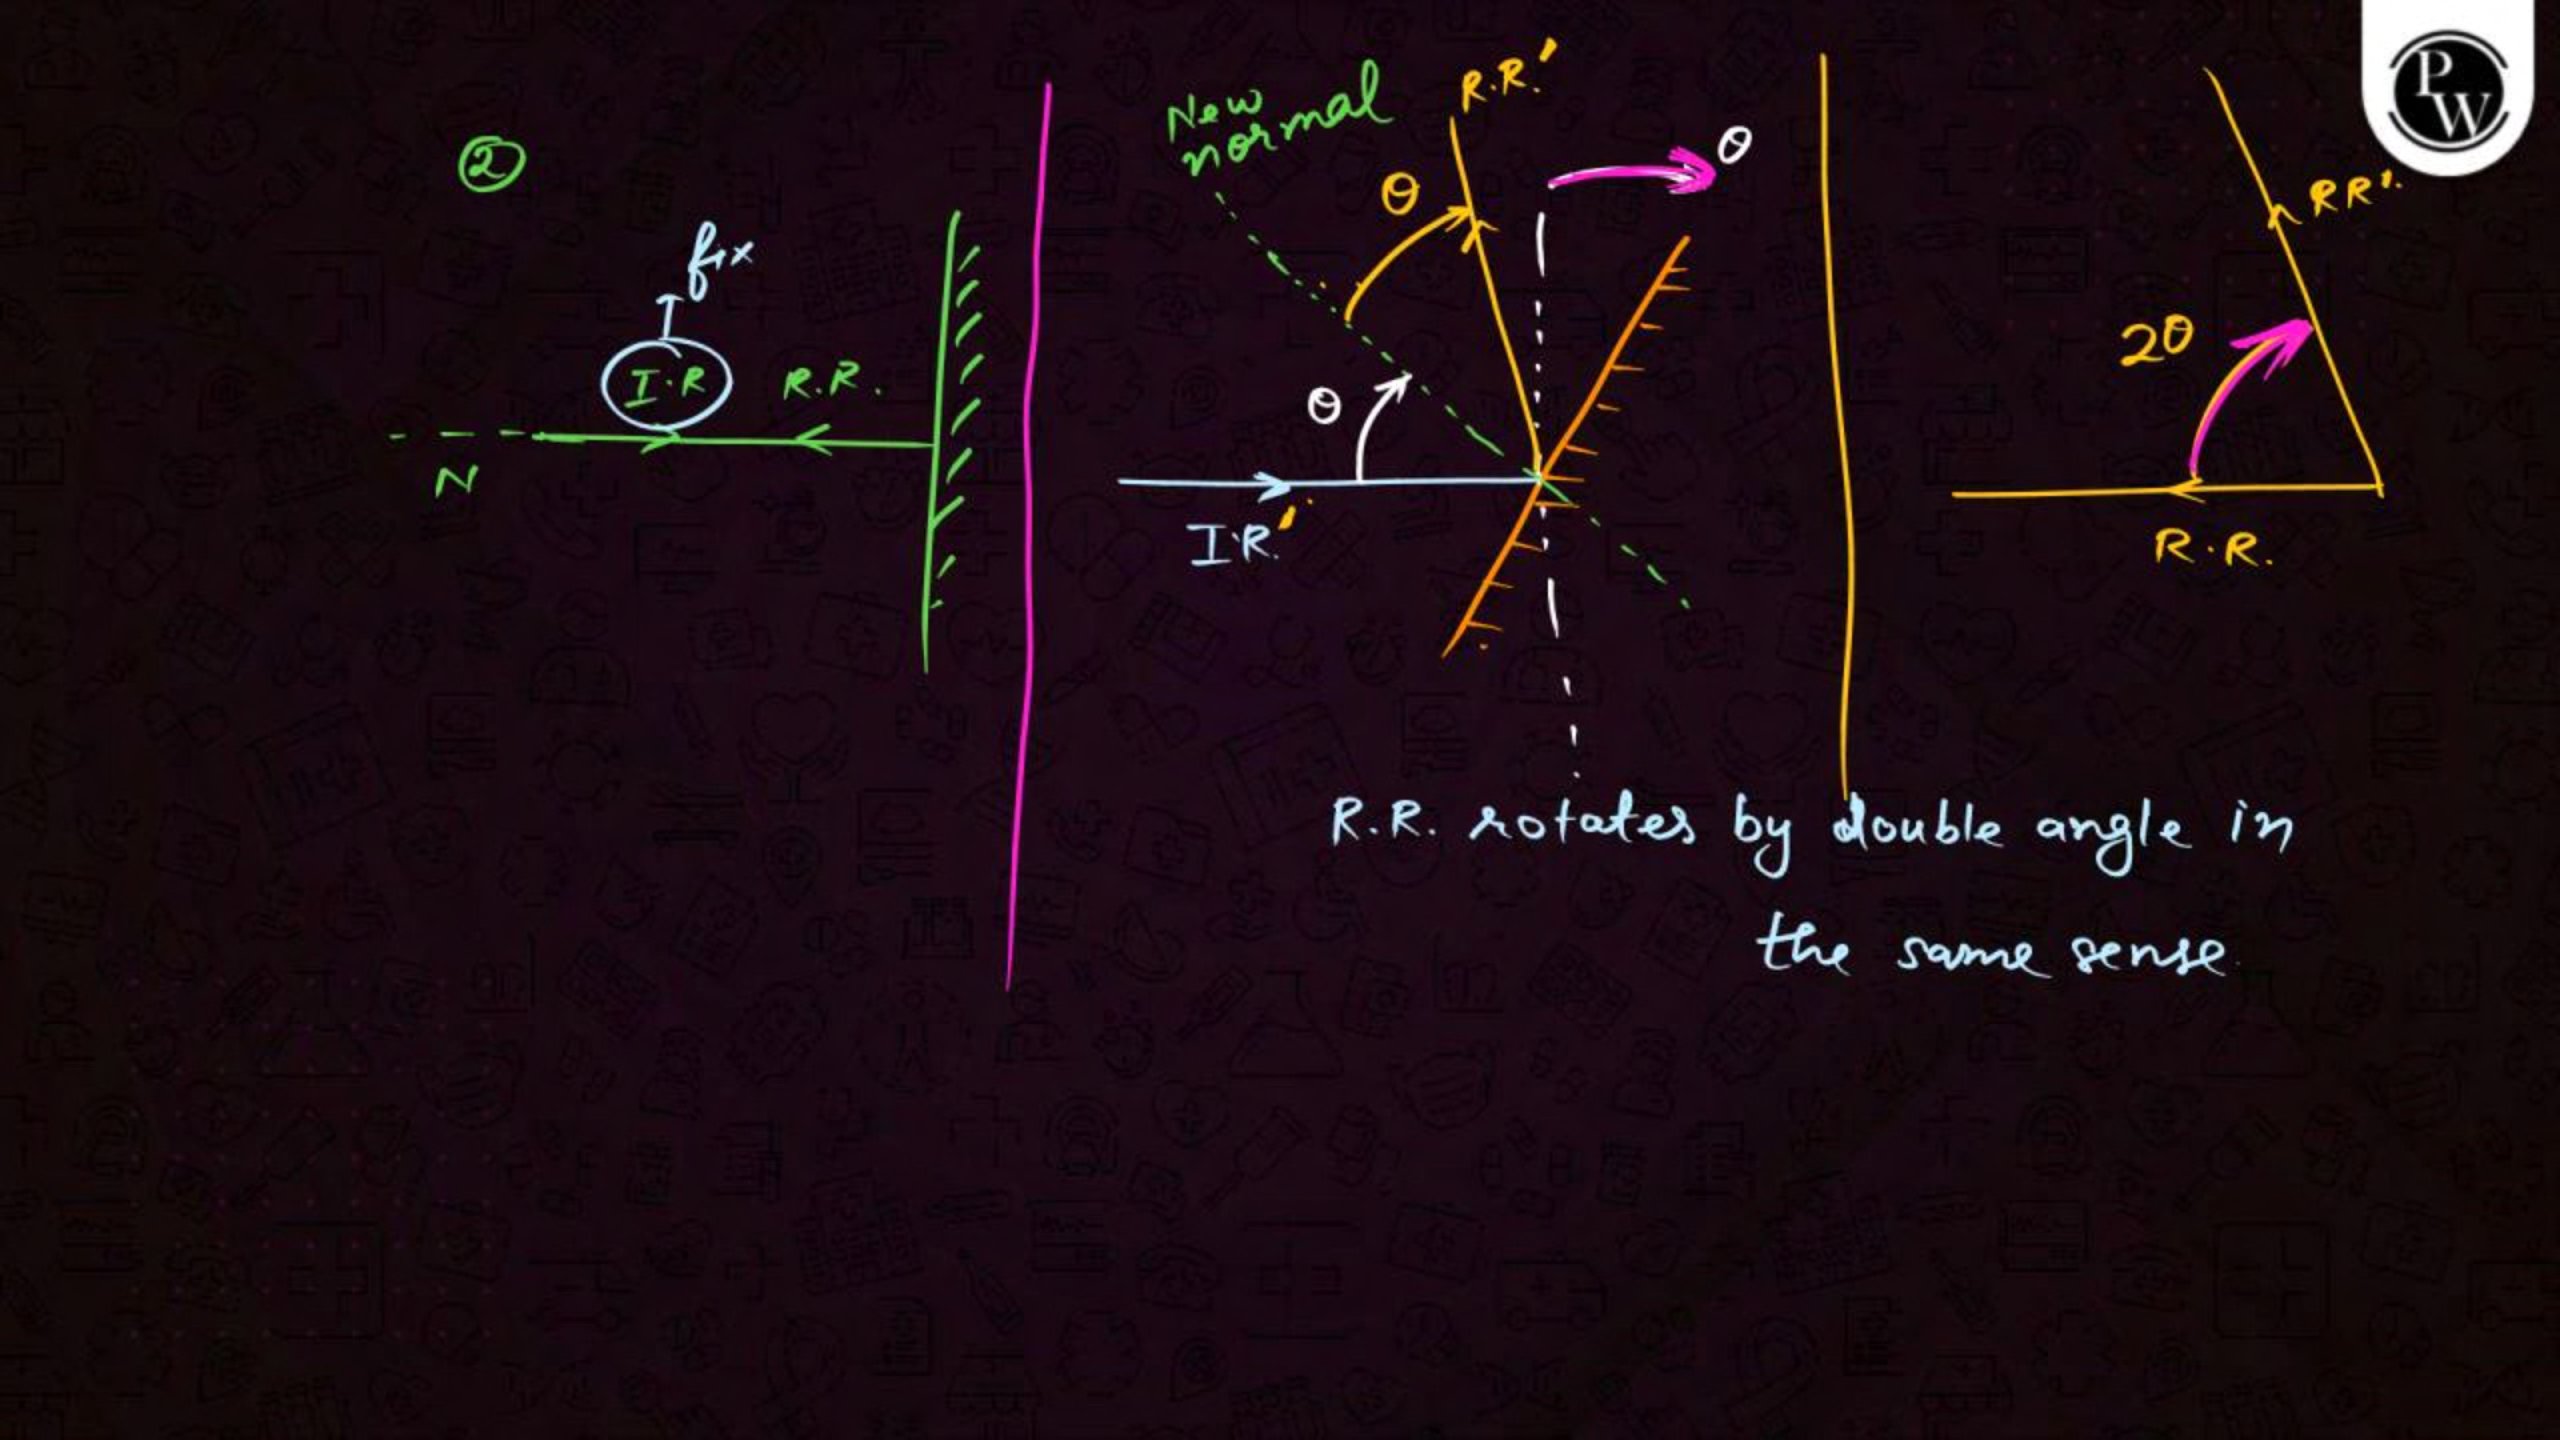 ②
fix
I.R
R.R.
N
New
normal
R.R.'
θ
θ
θ
I.R.'
RR'.
2θ
R.R.
R.R. rotates by double angle in
the same sense.
PW